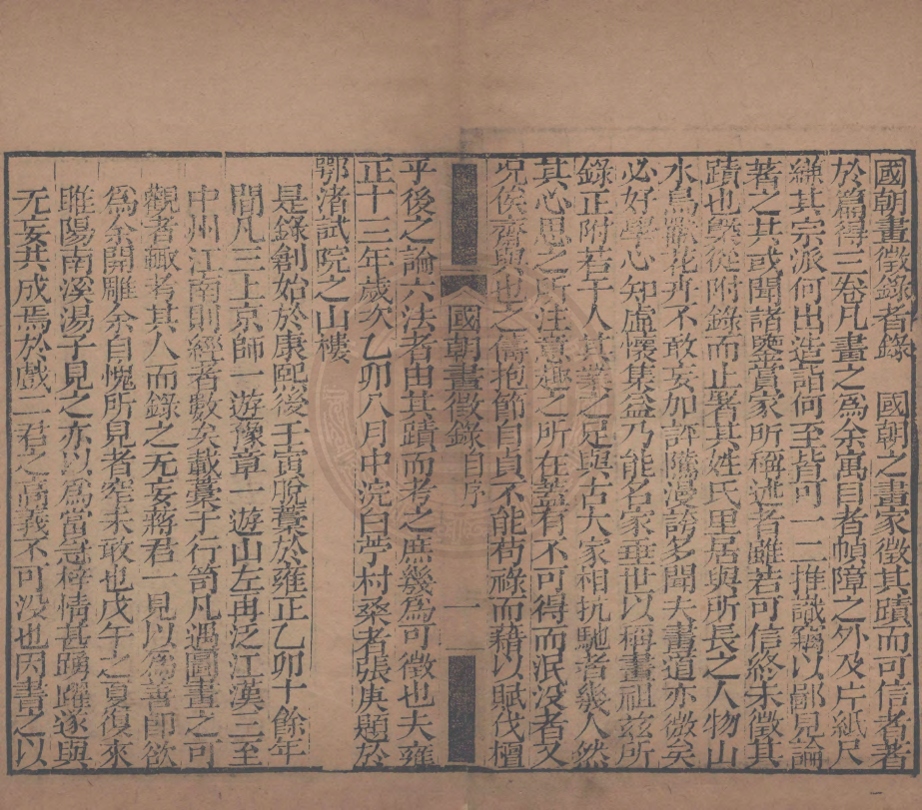 國朝畫徵錄者錄　國朝之畫家徵其蹟而可信者著
於篇得三卷凡畫之為余寓目者幀障之外及片紙尺
縑其宗派何出造詣何至皆可一二推識竊以鄙見論
著之其或聞諸鑒賞家所稱述者雖若可信終未徵其
蹟也槩從附錄而止署其姓氏里居與所長之人物山
水鳥獸花卉不敢妄加評隲漫誇多聞夫畫道亦微矣
必好學心知虛懷集益乃能名家垂世以稱畫祖茲所
錄正附若干人其業之足與古大家相抗馳者幾人然
其心思之所注意趣之所在甚有不可得而泯没者又
況俟齋與也之儔抱節自貞不能苟祿而藉以賦伐檀
國朝畫徵錄自序　一
乎後之論六法者由其蹟而考之庶幾為可徵也夫雍
正十三年歲次乙卯八月中浣白苧村桑者張庚題於
鄂渚試院之山樓
是錄創始於康熙後壬寅脫藁於雍正乙卯十餘年
間凡三上京師一遊豫章一遊山左再泛江漢三至
中州江南則經者數矣載藁于行笥凡遇圖畫之可
觀者輙考其人而錄之无妄蔣君一見以為善即欲
為余開雕余自愧所見者窄未敢也戊午之夏復來
睢陽南溪湯子見之亦以為當壽梓情甚踴躍遂與
无妄共成焉於戲二君之高義不可没也因書之以